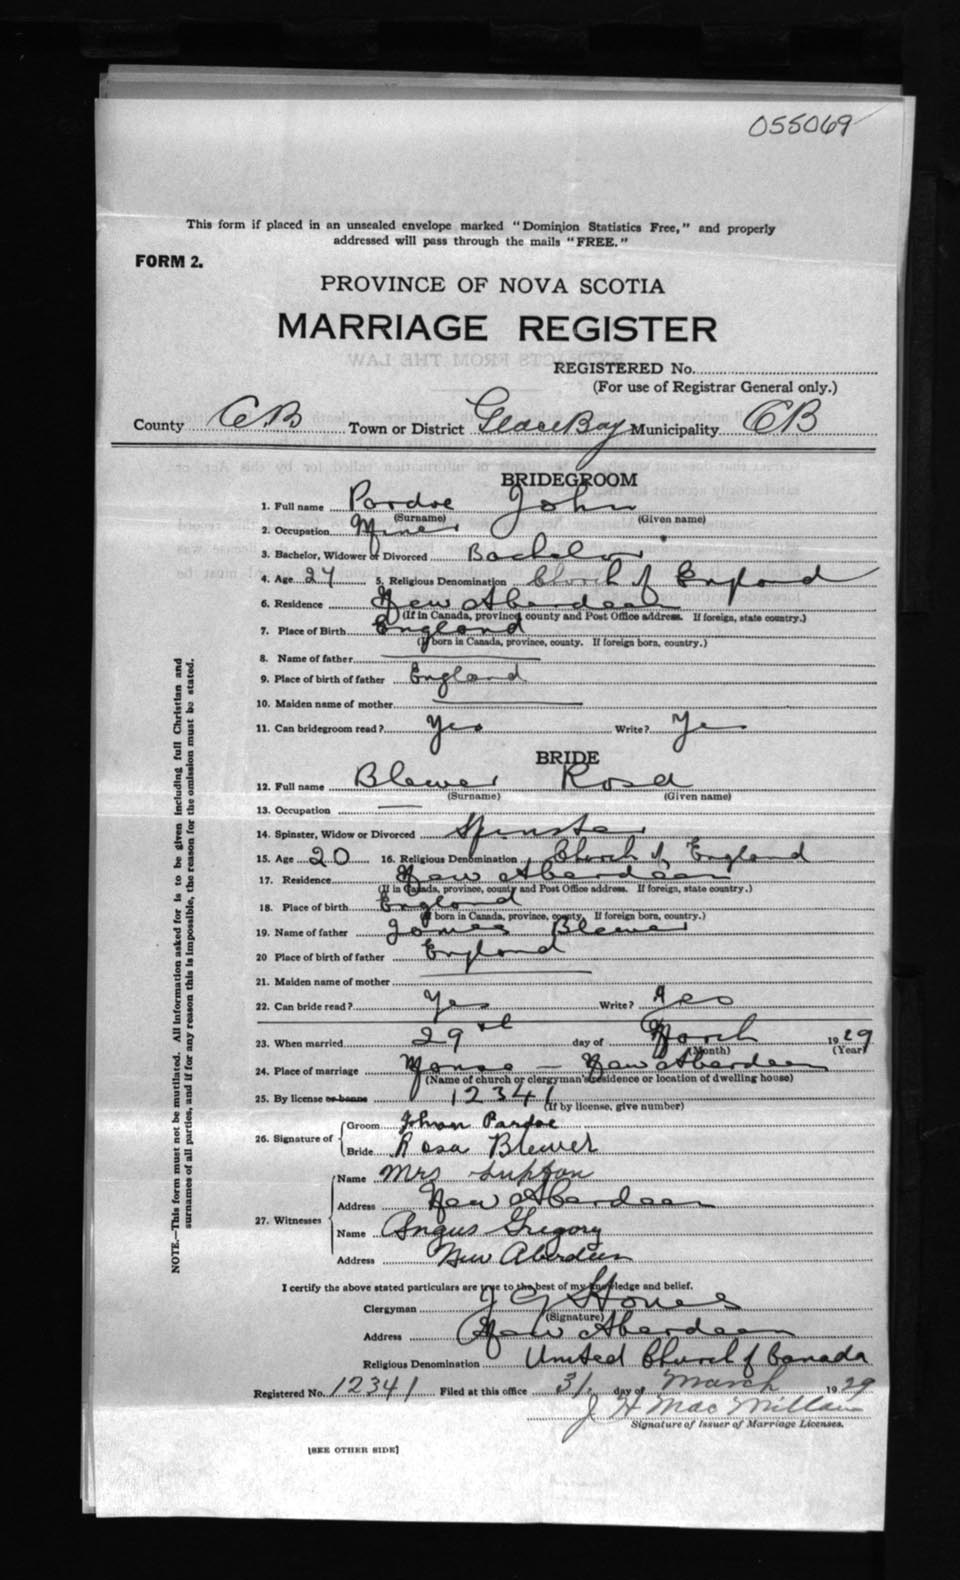 055069
This form if placed in an unsealed envelope marked "Dominion Statistics Free," and properly
addressed will pass through the mails "FREE."
FORM 2.
PROVINCE OF NOVA SCOTIA
MARRIAGE REGISTER
REGISTERED No.
(For use of Registrar General only.)
County CB Town or District Glace Bay Municipality CB
BRIDEGROOM
1. Full name Pardoe John
(Surname) (Given name)
2. Occupation Miner
3. Bachelor, Widower or Divorced Bachelor
4. Age 24 5. Religious Denomination Church of England
6. Residence New Aberdeen
(If in Canada, province county and Post Office address. If foreign, state country.)
7. Place of Birth England
(If born in Canada, province, county. If foreign born, country.)
8. Name of father
9. Place of birth of father England
10. Maiden name of mother
11. Can bridegroom read? Yes Write? Yes
BRIDE
12. Full name Blewer Rosa
(Surname) (Given name)
13. Occupation
14. Spinster, Widow or Divorced Spinster
15. Age 20 16. Religious Denomination Church of England
17. Residence New Aberdeen
(If in Canada, province, county and Post Office address. If foreign, state country.)
18. Place of birth England
(If born in Canada, province, county, If foreign born, country.)
19. Name of father James Blewer
20 Place of birth of father England
21. Maiden name of mother
22. Can bride read? Yes Write? Yes
23. When married 29th day of March 1929
(Month) (Year)
24. Place of marriage Manse — New Aberdeen
(Name of church or clergyman's residence or location of dwelling house)
25. By license or banns 12341
(If by license, give number)
26. Signature of Groom John Pardoe
Bride Rosa Blewer
27. Witnesses Name Mrs Lupton
Address New Aberdeen
Name Angus Gregory
Address New Aberdeen
I certify the above stated particulars are true to the best of my knowledge and belief.
Clergyman J G Hones
(Signature)
Address New Aberdeen
Religious Denomination United Church of Canada
Registered No. 12341 Filed at this office 31. day of March 1929
J H MacMillan
Signature of Issuer of Marriage Licenses.
[SEE OTHER SIDE]
NOTE.—This form must not be mutilated. All information asked for is to be given including full Christian and
surnames of all parties, and if for any reason this is impossible, the reason for the omission must be stated.